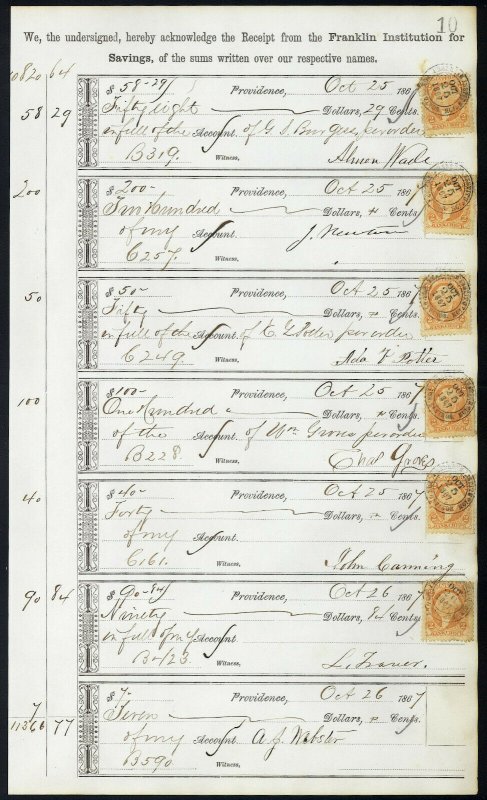 10
We, the undersigned, hereby acknowledge the Receipt from the Franklin Institution for
Savings, of the sums written over our respective names.
10820 64
$ 58-29/ Providence, Oct 25 1867
58 29
Fifty eight Dollars, 29 Cents.
in full of the Account of G S Burgess per order
B319. Witness, Almon Wade
200
$ 200- Providence, Oct 25 1867
Two Hundred Dollars, Cents
of my Account
C257. Witness, J. Newton
50
$ 50- Providence, Oct 25 1867
Fifty Dollars, Cents.
in full of the Account of per order
C249 Witness, Ada F Potter
100
$100- Providence, Oct 25 1867
One Hundred Dollars, Cents.
of the Account of Wm Gross per order
B228. Witness, Chas Gross
40
$ 40- Providence, Oct 25 1867
Forty Dollars, Cents.
of my Account.
C161. Witness, John Canning
90 84
$ 90-84/ Providence, Oct 26 1867
Ninety Dollars, 84 Cents.
in full of my Account.
B423. Witness,
7
$ 7- Providence, Oct 26 1867
11366 77
Seven Dollars, Cents.
of my Account A J Webster
B590 Witness,